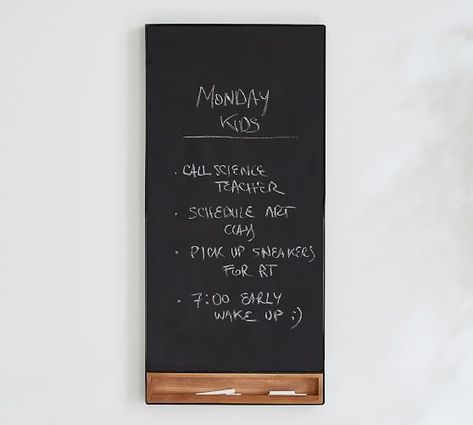 MONDAY
KIDS
· CALL SCIENCE
TEACHER
· SCHEDULE ART
CLASS
· PICK UP SNEAKERS
FOR RT
· 7:00 EARLY
WAKE UP ;)